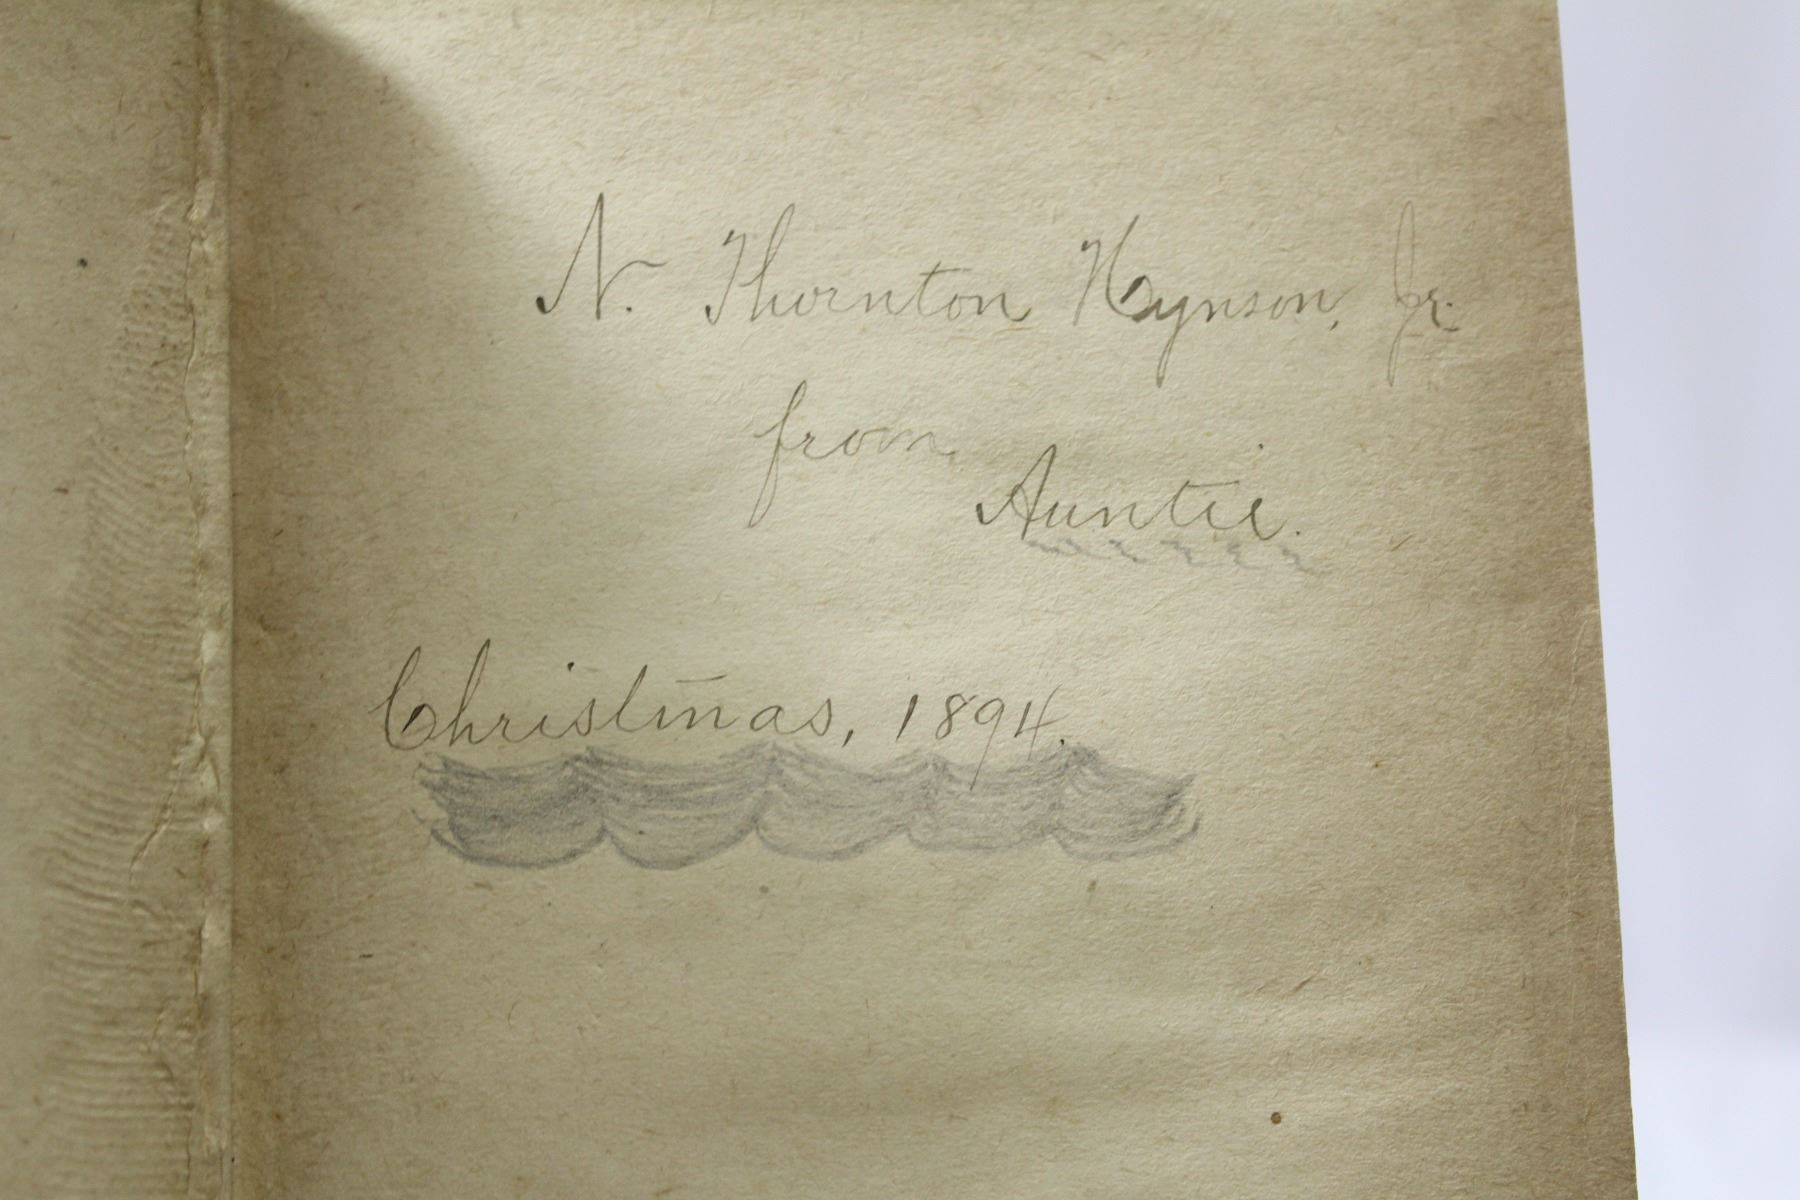 N. Thornton Hynson, Jr.
from
Auntie.
Christmas, 1894.